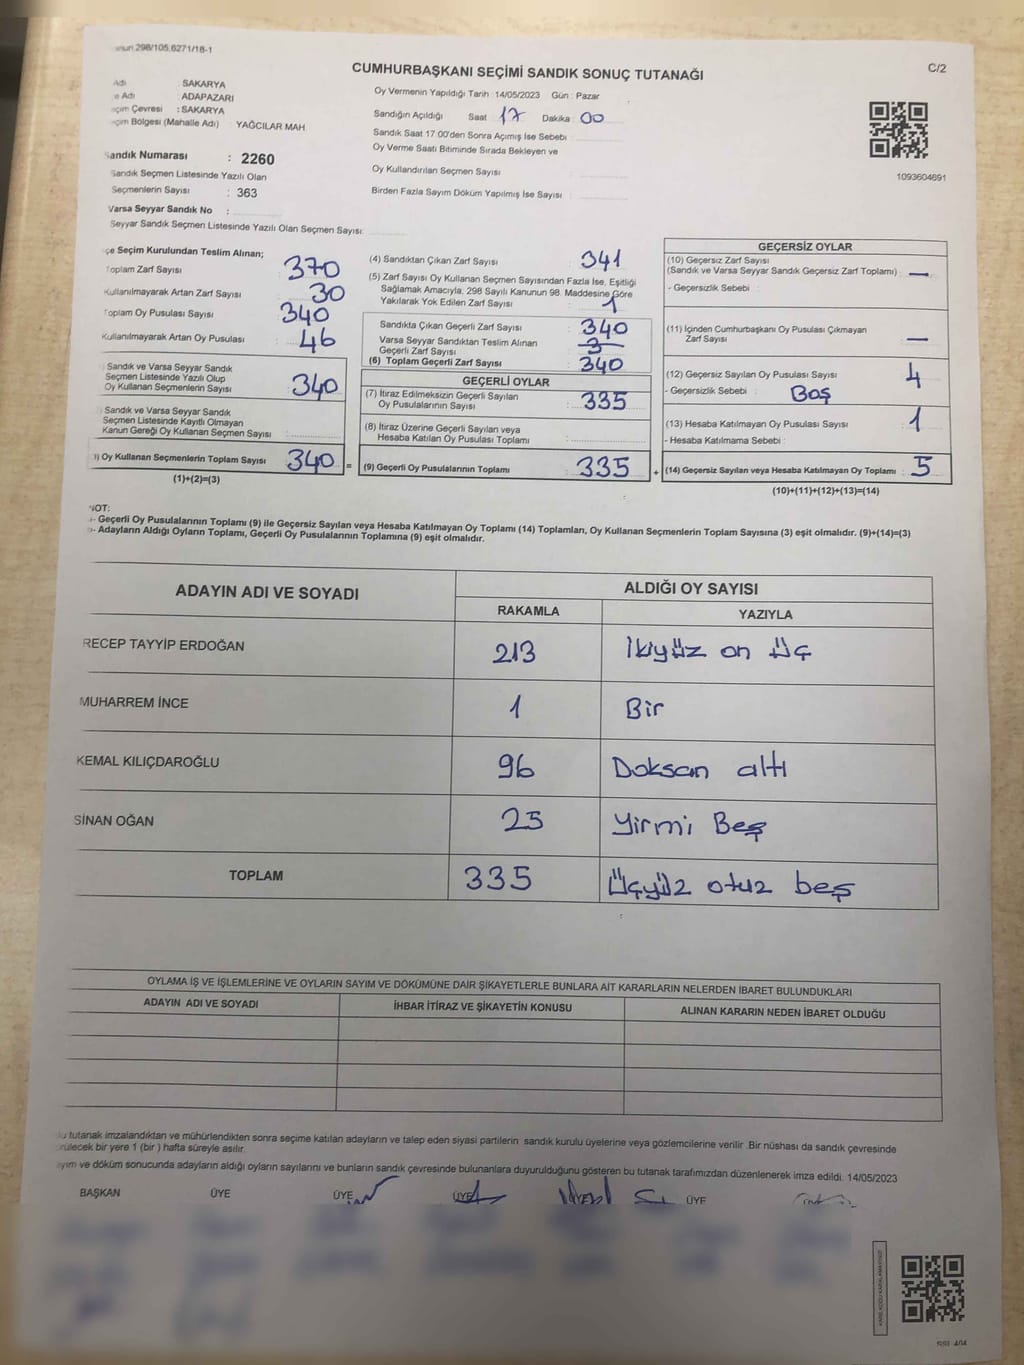 298/105,6271/18-1
C/2
CUMHURBAŞKANI SEÇİMİ SANDIK SONUÇ TUTANAĞI
Adı : SAKARYA
Adı : ADAPAZARI
Seçim Çevresi : SAKARYA
Seçim Bölgesi (Mahalle Adı) YAĞCILAR MAH.
Sandık Numarası : 2260
Sandık Seçmen Listesinde Yazılı Olan
Seçmenlerin Sayısı : 363
Varsa Seyyar Sandık No :
Seyyar Sandık Seçmen Listesinde Yazılı Olan Seçmen Sayısı:
Oy Vermenin Yapıldığı Tarih : 14/05/2023 Gün : Pazar
Sandığın Açıldığı Saat 17 Dakika 00
Sandık Saat 17.00'den Sonra Açımış İse Sebebi
Oy Verme Saati Bitiminde Sırada Bekleyen ve
Oy Kullandırılan Seçmen Sayısı :
Birden Fazla Sayım Döküm Yapılmış İse Sayısı :
1093604691
Seçim Kurulundan Teslim Alınan;
Toplam Zarf Sayısı 370
Kullanılmayarak Artan Zarf Sayısı 30
Toplam Oy Pusulası Sayısı 340
Kullanılmayarak Artan Oy Pusulası 46
Sandık ve Varsa Seyyar Sandık
Seçmen Listesinde Yazılı Olup
Oy Kullanan Seçmenlerin Sayısı 340
Sandık ve Varsa Seyyar Sandık
Seçmen Listesinde Kayıtlı Olmayan
Kanun Gereği Oy Kullanan Seçmen Sayısı :
Oy Kullanan Seçmenlerin Toplam Sayısı 340 =
(1)+(2)=(3)
(4) Sandıktan Çıkan Zarf Sayısı : 341
(5) Zarf Sayısı Oy Kullanan Seçmen Sayısından Fazla İse, Eşitliği
Sağlamak Amacıyla, 298 Sayılı Kanunun 98. Maddesine Göre
Yakılarak Yok Edilen Zarf Sayısı : 1
Sandıkta Çıkan Geçerli Zarf Sayısı : 340
Varsa Seyyar Sandıktan Teslim Alınan
Geçerli Zarf Sayısı :
(6) Toplam Geçerli Zarf Sayısı : 340
GEÇERLİ OYLAR
(7) İtiraz Edilmeksizin Geçerli Sayılan
Oy Pusulalarının Sayısı : 335
(8) İtiraz Üzerine Geçerli Sayılan veya
Hesaba Katılan Oy Pusulası Toplamı :
(9) Geçerli Oy Pusulalarının Toplamı : 335 +
GEÇERSİZ OYLAR
(10) Geçersiz Zarf Sayısı
(Sandık ve Varsa Seyyar Sandık Geçersiz Zarf Toplamı) : —
- Geçersizlik Sebebi :
(11) İçinden Cumhurbaşkanı Oy Pusulası Çıkmayan
Zarf Sayısı : —
(12) Geçersiz Sayılan Oy Pusulası Sayısı : 4
- Geçersizlik Sebebi : Boş
(13) Hesaba Katılmayan Oy Pusulası Sayısı : 1
- Hesaba Katılmama Sebebi :
(14) Geçersiz Sayılan veya Hesaba Katılmayan Oy Toplamı : 5
(10)+(11)+(12)+(13)=(14)
NOT:
- Geçerli Oy Pusulalarının Toplamı (9) ile Geçersiz Sayılan veya Hesaba Katılmayan Oy Toplamı (14) Toplamları, Oy Kullanan Seçmenlerin Toplam Sayısına (3) eşit olmalıdır. (9)+(14)=(3)
- Adayların Aldığı Oyların Toplamı, Geçerli Oy Pusulalarının Toplamına (9) eşit olmalıdır.
ADAYIN ADI VE SOYADI ALDIĞI OY SAYISI
RAKAMLA YAZIYLA
RECEP TAYYİP ERDOĞAN 213 İkiyüz on üç
MUHARREM İNCE 1 Bir
KEMAL KILIÇDAROĞLU 96 Doksan altı
SİNAN OĞAN 25 Yirmi Beş
TOPLAM 335 üçyüz otuz beş
OYLAMA İŞ VE İŞLEMLERİNE VE OYLARIN SAYIM VE DÖKÜMÜNE DAİR ŞİKAYETLERLE BUNLARA AİT KARARLARIN NELERDEN İBARET BULUNDUKLARI
ADAYIN ADI VE SOYADI İHBAR İTİRAZ VE ŞİKAYETİN KONUSU ALINAN KARARIN NEDEN İBARET OLDUĞU
tutanak imzalandıktan ve mühürlendikten sonra seçime katılan adayların ve talep eden siyasi partilerin sandık kurulu üyelerine veya gözlemcilerine verilir. Bir nüshası da sandık çevresinde
bir yere 1 (bir) hafta süreyle asılır.
ve döküm sonucunda adayların aldığı oyların sayılarını ve bunların sandık çevresinde bulunanlara duyurulduğunu gösteren bu tutanak tarafımızdan düzenlenerek imza edildi. 14/05/2023
BAŞKAN ÜYE ÜYE ÜYE ÜYE